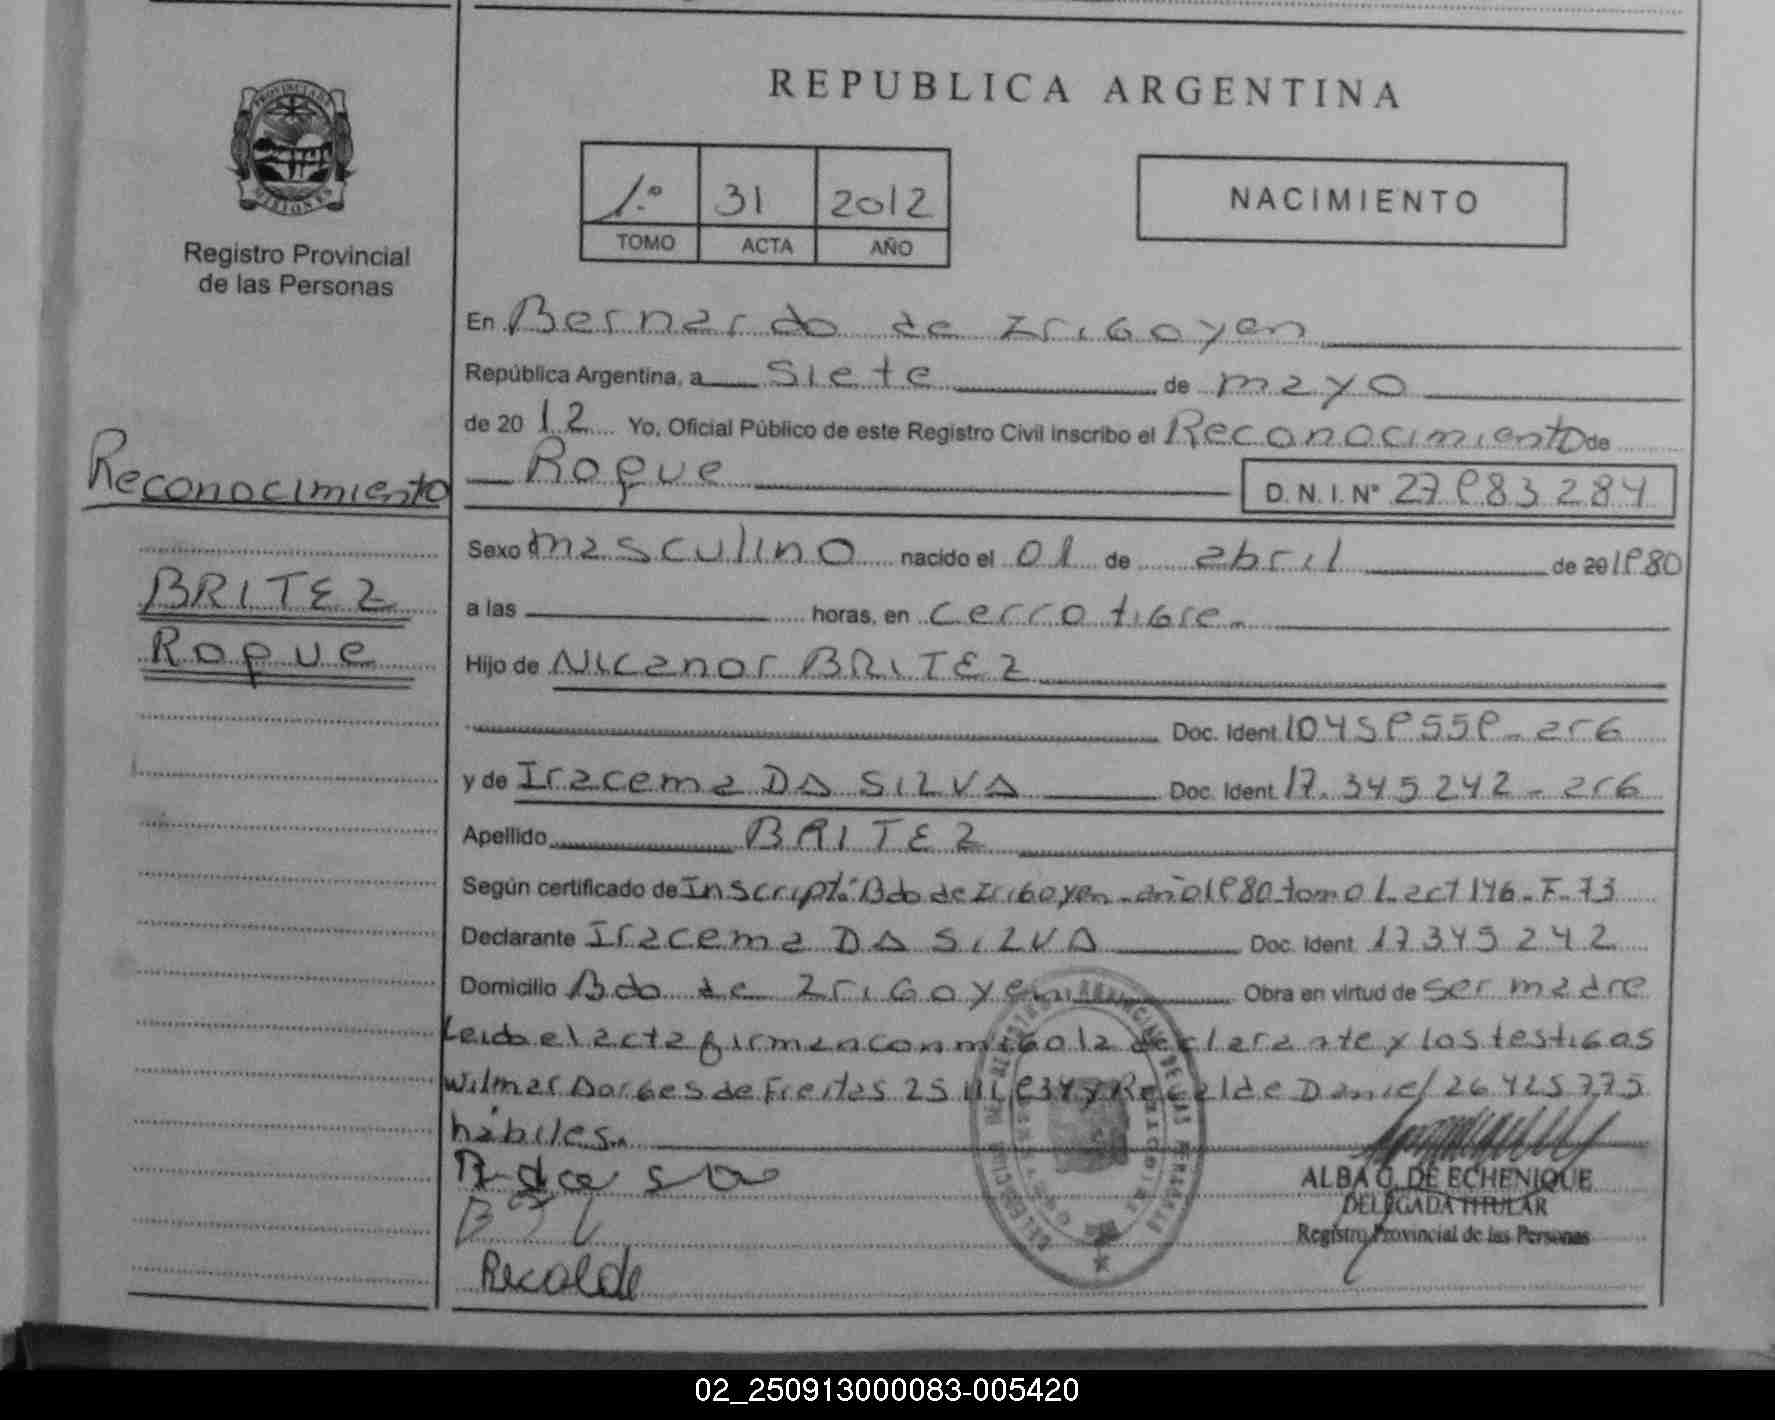 PROVINCIA DE
MISIONES
Registro Provincial
de las Personas
Reconocimiento
BRITEZ
Roque
REPUBLICA ARGENTINA
1º 31 2012
TOMO ACTA AÑO
NACIMIENTO
En Bernardo de Irigoyen
República Argentina, a siete de mayo
de 2012 Yo, Oficial Público de este Registro Civil inscribo el Reconocimiento de
Roque D.N.I. Nº 27983284
Sexo masculino nacido el 01 de abril de 20 1980
a las horas, en cerro tigre.
Hijo de Nicanor BRITEZ
Doc. Ident. 10459559-arg
y de Iracema DA SILVA Doc. Ident. 17.345242-arg
Apellido BRITEZ
Según certificado de Inscript. Bdo de Irigoyen-año 1980 tomo 1-act 146-F-73
Declarante Iracema DA SILVA Doc. Ident. 17345242
Domicilio Bdo de Irigoyen Obra en virtud de ser madre
Leido el acta firman conmigo la declarante y los testigos
Wilmar Borges de Freitas 25111934 y Recalde Daniel 26425775
hábiles.
Recalde
ALBA G. DE ECHENIQUE
DELEGADA TITULAR
Registro Provincial de las Personas
02_250913000083-005420